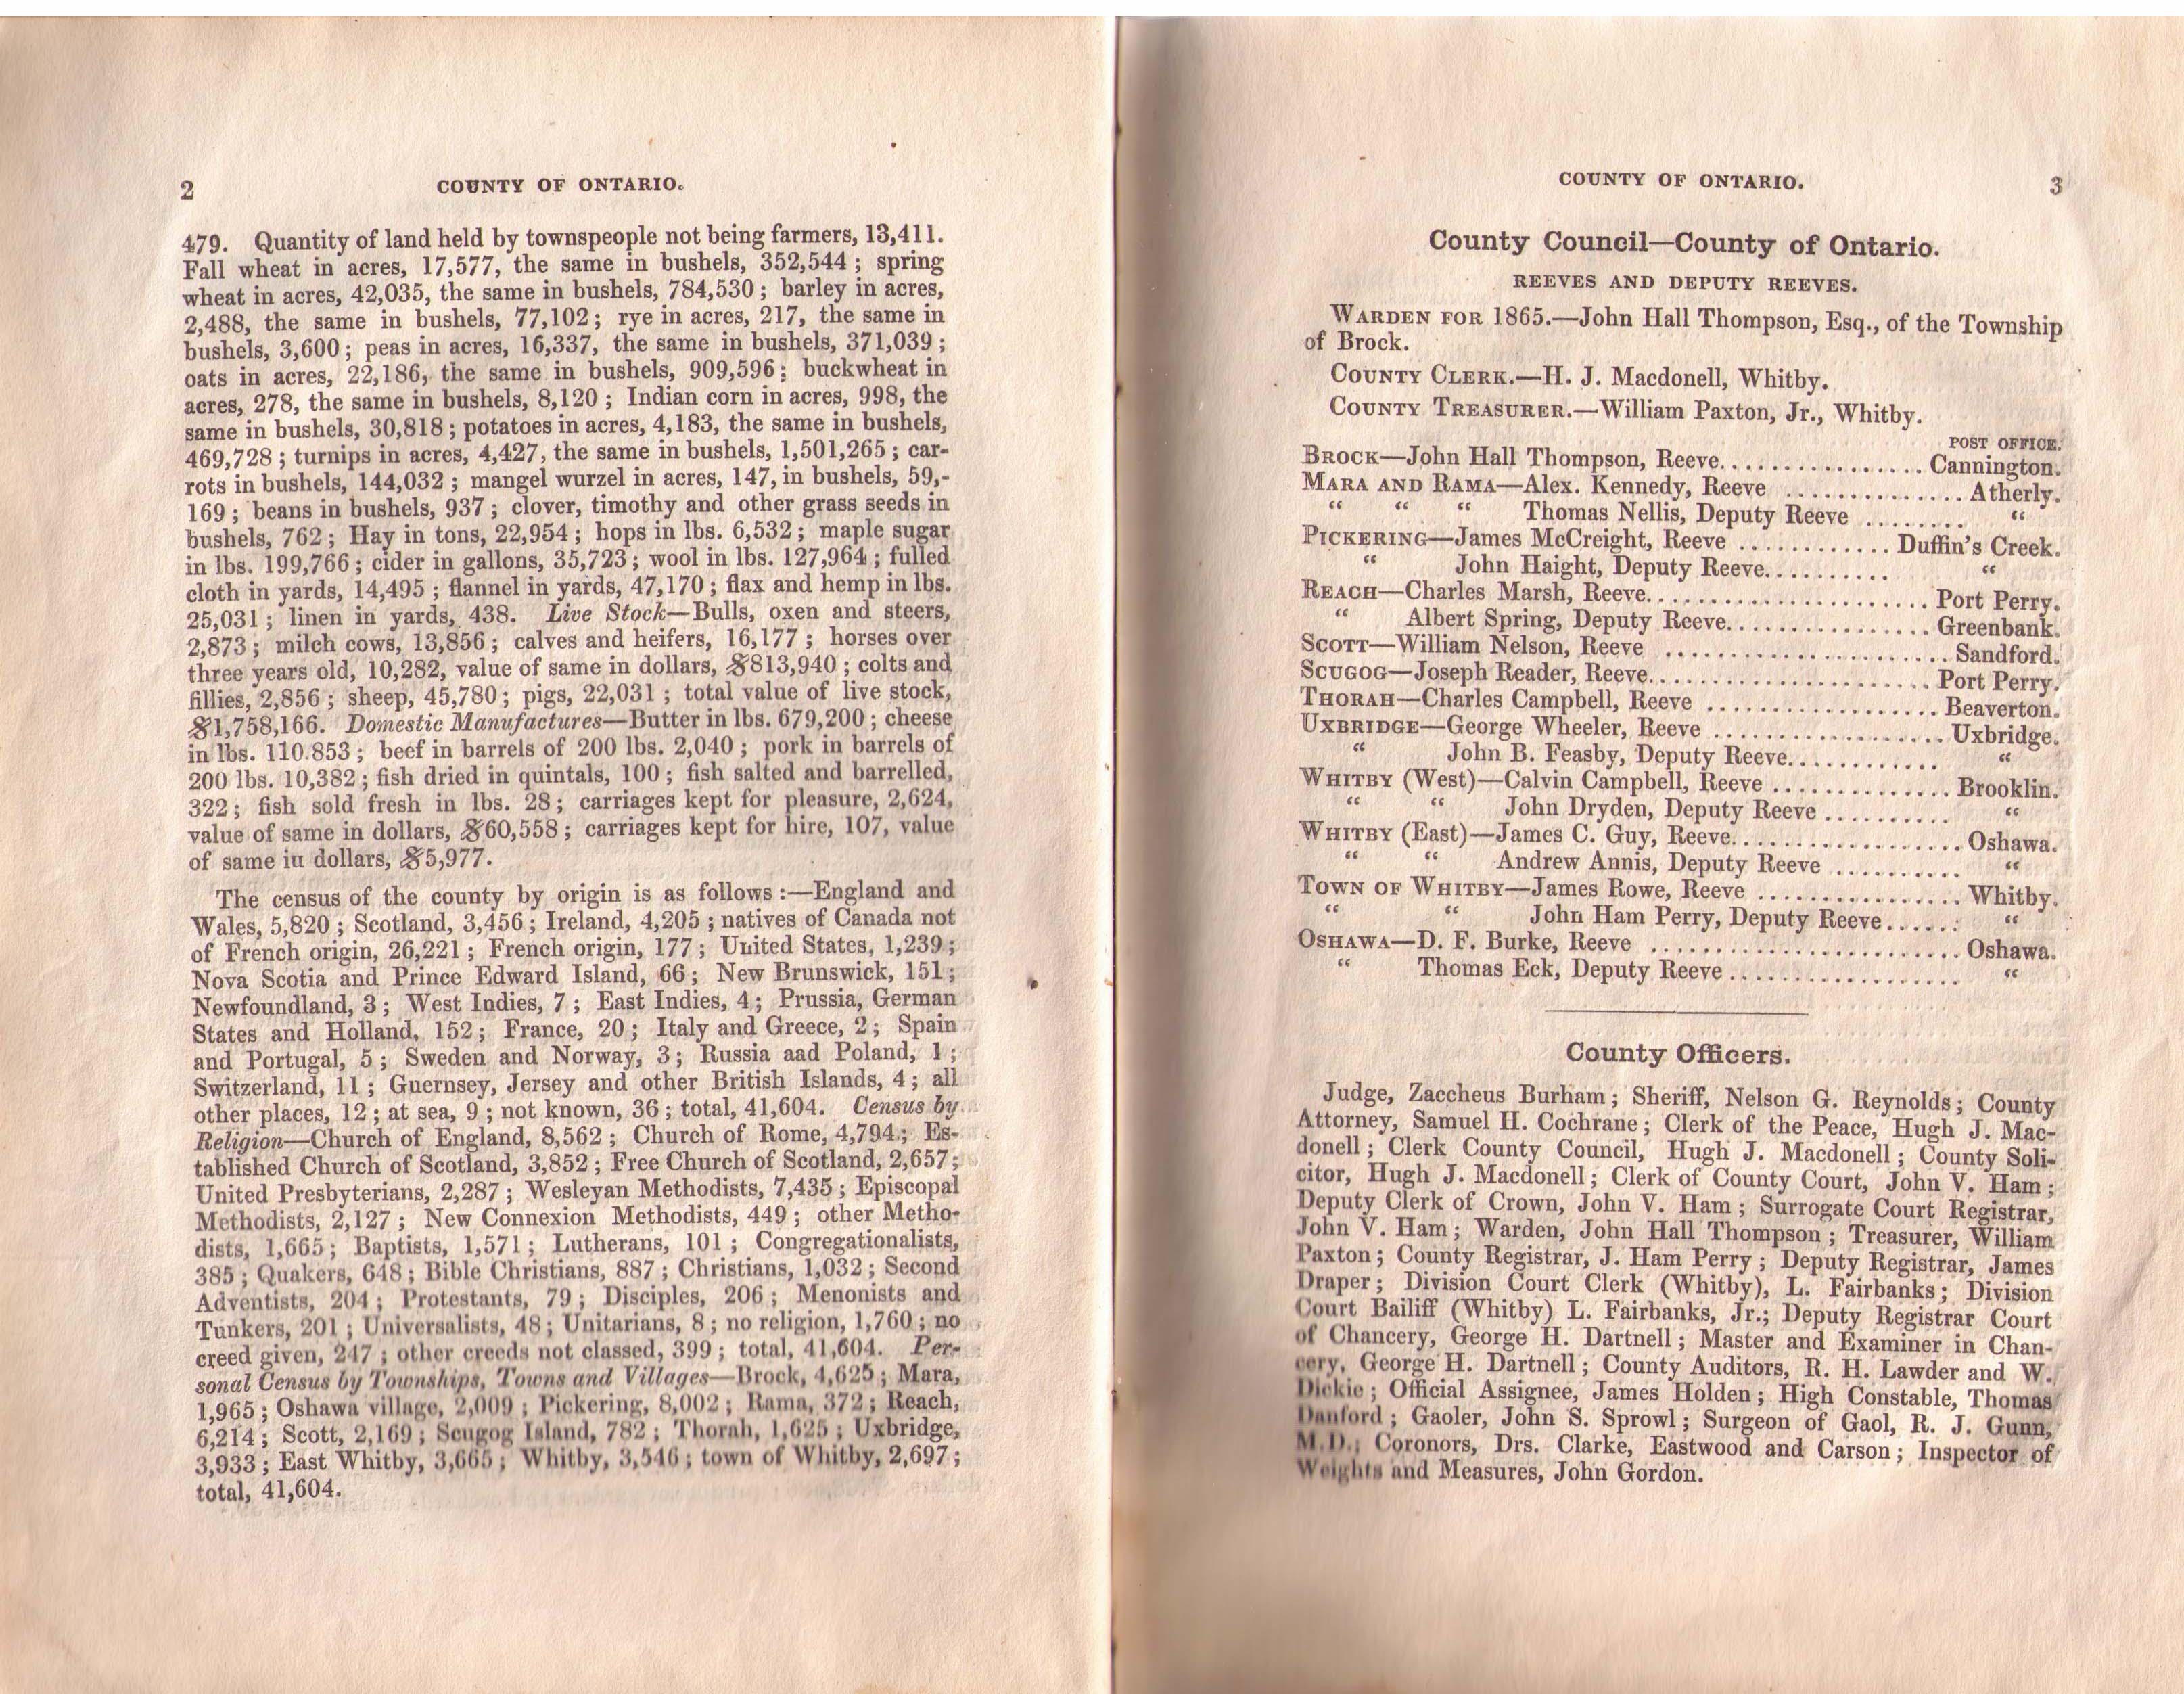 2
COUNTY OF ONTARIO.
479. Quantity of land held by townspeople not being farmers, 13,411.
Fall wheat in acres, 17,577, the same in bushels, 352,544 ; spring
wheat in acres, 42,035, the same in bushels, 784,530 ; barley in acres,
2,488, the same in bushels, 77,102 ; rye in acres, 217, the same in
bushels, 3,600 ; peas in acres, 16,337, the same in bushels, 371,039 ;
oats in acres, 22,186, the same in bushels, 909,596 ; buckwheat in
acres, 278, the same in bushels, 8,120 ; Indian corn in acres, 998, the
same in bushels, 30,818 ; potatoes in acres, 4,183, the same in bushels,
469,728 ; turnips in acres, 4,427, the same in bushels, 1,501,265 ; car-
rots in bushels, 144,032 ; mangel wurzel in acres, 147, in bushels, 59,-
169 ; beans in bushels, 937 ; clover, timothy and other grass seeds in
bushels, 762 ; Hay in tons, 22,954 ; hops in lbs. 6,532 ; maple sugar
in lbs. 199,766 ; cider in gallons, 35,723 ; wool in lbs. 127,964 ; fulled
cloth in yards, 14,495 ; flannel in yards, 47,170 ; flax and hemp in lbs.
25,031 ; linen in yards, 438. Live Stock—Bulls, oxen and steers,
2,873 ; milch cows, 13,856 ; calves and heifers, 16,177 ; horses over
three years old, 10,282, value of same in dollars, $813,940 ; colts and
fillies, 2,856 ; sheep, 45,780 ; pigs, 22,031 ; total value of live stock,
$1,758,166. Domestic Manufactures—Butter in lbs. 679,200 ; cheese
in lbs. 110.853 ; beef in barrels of 200 lbs. 2,040 ; pork in barrels of
200 lbs. 10,382 ; fish dried in quintals, 100 ; fish salted and barrelled,
322 ; fish sold fresh in lbs. 28 ; carriages kept for pleasure, 2,624,
value of same in dollars, $60,558 ; carriages kept for hire, 107, value
of same iu dollars, $5,977.
The census of the county by origin is as follows :—England and
Wales, 5,820 ; Scotland, 3,456 ; Ireland, 4,205 ; natives of Canada not
of French origin, 26,221 ; French origin, 177 ; United States, 1,239 ;
Nova Scotia and Prince Edward Island, 66 ; New Brunswick, 151 ;
Newfoundland, 3 ; West Indies, 7 ; East Indies, 4 ; Prussia, German
States and Holland, 152 ; France, 20 ; Italy and Greece, 2 ; Spain
and Portugal, 5 ; Sweden and Norway, 3 ; Russia aad Poland, 1 ;
Switzerland, 11 ; Guernsey, Jersey and other British Islands, 4 ; all
other places, 12 ; at sea, 9 ; not known, 36 ; total, 41,604. Census by
Religion—Church of England, 8,562 ; Church of Rome, 4,794 ; Es-
tablished Church of Scotland, 3,852 ; Free Church of Scotland, 2,657 ;
United Presbyterians, 2,287 ; Wesleyan Methodists, 7,435 ; Episcopal
Methodists, 2,127 ; New Connexion Methodists, 449 ; other Metho-
dists, 1,665 ; Baptists, 1,571 ; Lutherans, 101 ; Congregationalists,
385 ; Quakers, 648 ; Bible Christians, 887 ; Christians, 1,032 ; Second
Adventists, 204 ; Protestants, 79 ; Disciples, 206 ; Menonists and
Tunkers, 201 ; Universalists, 48 ; Unitarians, 8 ; no religion, 1,760 ; no
creed given, 247 ; other creeds not classed, 399 ; total, 41,604. Per-
sonal Census by Townships, Towns and Villages—Brock, 4,625 ; Mara,
1,965 ; Oshawa village, 2,009 ; Pickering, 8,002 ; Rama, 372 ; Reach,
6,214 ; Scott, 2,169 ; Scugog Island, 782 ; Thorah, 1,625 ; Uxbridge,
3,933 ; East Whitby, 3,665 ; Whitby, 3,546 ; town of Whitby, 2,697 ;
total, 41,604.
COUNTY OF ONTARIO.
3
County Council—County of Ontario.
REEVES AND DEPUTY REEVES.
WARDEN FOR 1865.—John Hall Thompson, Esq., of the Township
of Brock.
COUNTY CLERK.—H. J. Macdonell, Whitby.
COUNTY TREASURER.—William Paxton, Jr., Whitby.
POST OFFICE.
BROCK—John Hall Thompson, Reeve................ Cannington.
MARA AND RAMA—Alex. Kennedy, Reeve .............. Atherly.
“ “ “ Thomas Nellis, Deputy Reeve ........ “
PICKERING—James McCreight, Reeve ............ Duffin's Creek.
“ John Haight, Deputy Reeve.......... “
REACH—Charles Marsh, Reeve....................... Port Perry.
“ Albert Spring, Deputy Reeve................. Greenbank.
SCOTT—William Nelson, Reeve ....................... Sandford.
SCUGOG—Joseph Reader, Reeve....................... Port Perry.
THORAH—Charles Campbell, Reeve ................... Beaverton.
UXBRIDGE—George Wheeler, Reeve ................... Uxbridge.
“ John B. Feasby, Deputy Reeve............ “
WHITBY (West)—Calvin Campbell, Reeve .............. Brooklin.
“ “ John Dryden, Deputy Reeve .......... “
WHITBY (East)—James C. Guy, Reeve.................. Oshawa.
“ “ Andrew Annis, Deputy Reeve .......... “
TOWN OF WHITBY—James Rowe, Reeve ................ Whitby.
“ “ John Ham Perry, Deputy Reeve...... “
OSHAWA—D. F. Burke, Reeve ........................ Oshawa.
“ Thomas Eck, Deputy Reeve.................. “
County Officers.
Judge, Zaccheus Burham ; Sheriff, Nelson G. Reynolds ; County
Attorney, Samuel H. Cochrane ; Clerk of the Peace, Hugh J. Mac-
donell ; Clerk County Council, Hugh J. Macdonell ; County Soli-
citor, Hugh J. Macdonell ; Clerk of County Court, John V. Ham ;
Deputy Clerk of Crown, John V. Ham ; Surrogate Court Registrar,
John V. Ham ; Warden, John Hall Thompson ; Treasurer, William
Paxton ; County Registrar, J. Ham Perry ; Deputy Registrar, James
Draper ; Division Court Clerk (Whitby), L. Fairbanks ; Division
Court Bailiff (Whitby) L. Fairbanks, Jr.; Deputy Registrar Court
of Chancery, George H. Dartnell ; Master and Examiner in Chan-
cery, George H. Dartnell ; County Auditors, R. H. Lawder and W.
Dickie ; Official Assignee, James Holden ; High Constable, Thomas
Danford ; Gaoler, John S. Sprowl ; Surgeon of Gaol, R. J. Gunn,
M.D.; Coronors, Drs. Clarke, Eastwood and Carson ; Inspector of
Weights and Measures, John Gordon.